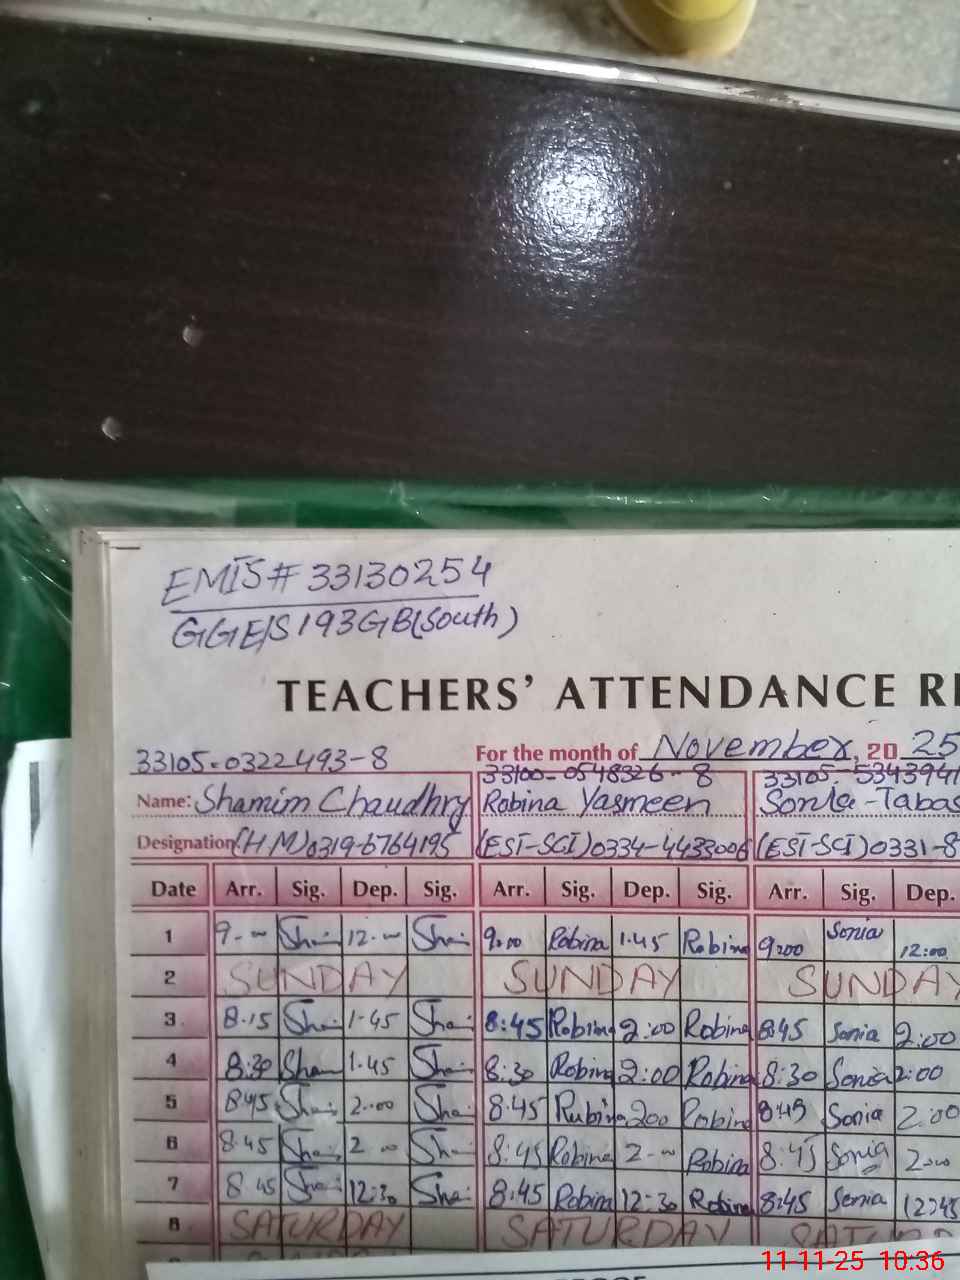 EMIS# 33130254
GGE/S 193GB(South)
TEACHERS' ATTENDANCE
33105-0322493-8 For the month of November, 20 25
33100-0548326-8 33105-5343941
Name: Shamim Chaudhry Robina Yasmeen Sonia-Tabas
Designation (HM) 0319-6764195 (EST-SCI) 0334-4433006 (EST-SCI) 0331-8
Date Arr. Sig. Dep. Sig. Arr. Sig. Dep. Sig. Arr. Sig. Dep.
1 9-00 Sha 12-00 Sha 9:00 Robina 1.45 Robina 9:00 Sonia 12:00
2 SUNDAY SUNDAY SUNDAY
3 8.15 Sha 1-45 Sha 8:45 Robina 2:00 Robina 8:45 Sonia 2:00
4 8:30 Sham 1.45 Sha 8:30 Robina 2:00 Robina 8:30 Sonia 2:00
5 8:45 Sha 2:00 Sha 8:45 Rubina 200 Robina 8:45 Sonia 2:00
6 8.45 Sha 2.00 Sha 8:45 Robina 2-00 Robina 8:45 Sonia 2:00
7 8:45 Sha 12:30 Sha 8:45 Robina 12:30 Robina 8:45 Sonia 12:45
8 SATURDAY SATURDAY
11-11-25 10:36